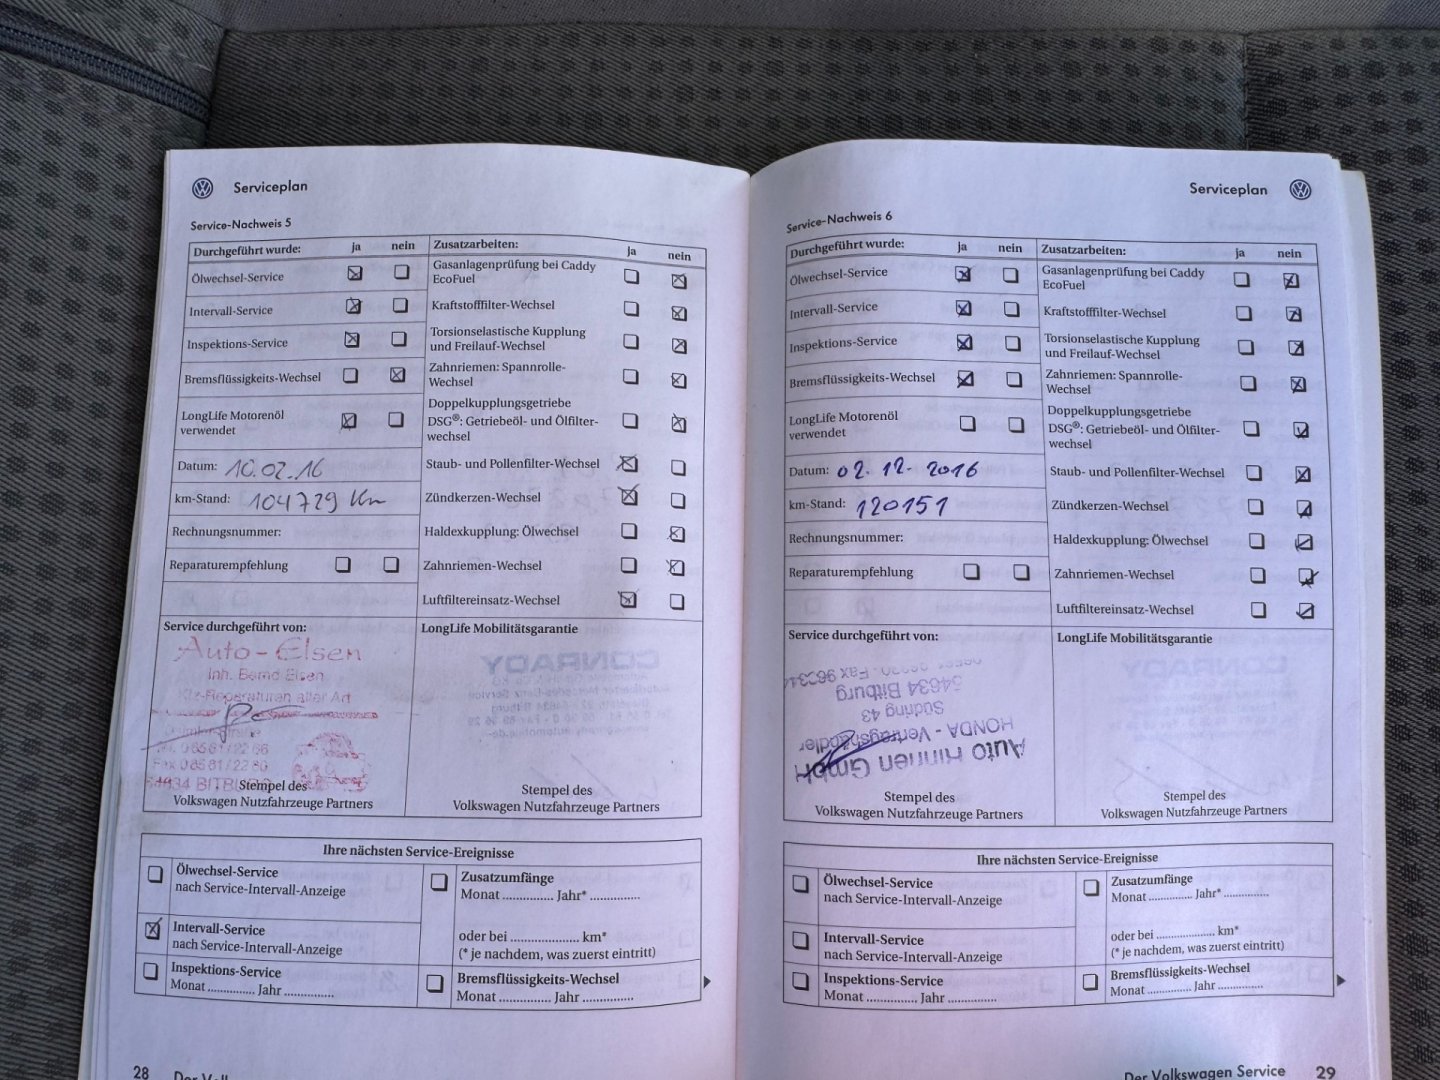 Serviceplan
Service-Nachweis 5
Durchgeführt wurde: ja nein
Ölwechsel-Service
Intervall-Service
Inspektions-Service
Bremsflüssigkeits-Wechsel
LongLife Motorenöl
verwendet
Datum: 10.02.16
km-Stand: 104729 Km
Rechnungsnummer:
Reparaturempfehlung
Zusatzarbeiten: ja nein
Gasanlagenprüfung bei Caddy
EcoFuel
Kraftstofffilter-Wechsel
Torsionselastische Kupplung
und Freilauf-Wechsel
Zahnriemen: Spannrolle-
Wechsel
Doppelkupplungsgetriebe
DSG®: Getriebeöl- und Ölfilter-
wechsel
Staub- und Pollenfilter-Wechsel
Zündkerzen-Wechsel
Haldexkupplung: Ölwechsel
Zahnriemen-Wechsel
Luftfiltereinsatz-Wechsel
Service durchgeführt von:
Auto-Elsen
Inh. Bernd Elsen
Kfz-Reparaturen aller Art
54634 BITBURG
Stempel des
Volkswagen Nutzfahrzeuge Partners
LongLife Mobilitätsgarantie
Stempel des
Volkswagen Nutzfahrzeuge Partners
Ihre nächsten Service-Ereignisse
Ölwechsel-Service
nach Service-Intervall-Anzeige
Intervall-Service
nach Service-Intervall-Anzeige
Inspektions-Service
Monat .............. Jahr ..............
Zusatzumfänge
Monat .............. Jahr* ..............
oder bei .................... km*
(* je nachdem, was zuerst eintritt)
Bremsflüssigkeits-Wechsel
Monat .............. Jahr ..............
28
Serviceplan
Service-Nachweis 6
Durchgeführt wurde: ja nein
Ölwechsel-Service
Intervall-Service
Inspektions-Service
Bremsflüssigkeits-Wechsel
LongLife Motorenöl
verwendet
Datum: 02.12.2016
km-Stand: 120151
Rechnungsnummer:
Reparaturempfehlung
Zusatzarbeiten: ja nein
Gasanlagenprüfung bei Caddy
EcoFuel
Kraftstofffilter-Wechsel
Torsionselastische Kupplung
und Freilauf-Wechsel
Zahnriemen: Spannrolle-
Wechsel
Doppelkupplungsgetriebe
DSG®: Getriebeöl- und Ölfilter-
wechsel
Staub- und Pollenfilter-Wechsel
Zündkerzen-Wechsel
Haldexkupplung: Ölwechsel
Zahnriemen-Wechsel
Luftfiltereinsatz-Wechsel
Service durchgeführt von:
Auto Hinnen GmbH
HONDA - Vertragshändler
Südring 43
54634 Bitburg
Stempel des
Volkswagen Nutzfahrzeuge Partners
LongLife Mobilitätsgarantie
Stempel des
Volkswagen Nutzfahrzeuge Partners
Ihre nächsten Service-Ereignisse
Ölwechsel-Service
nach Service-Intervall-Anzeige
Intervall-Service
nach Service-Intervall-Anzeige
Inspektions-Service
Monat .............. Jahr ..............
Zusatzumfänge
Monat .............. Jahr* ..............
oder bei .................... km*
(* je nachdem, was zuerst eintritt)
Bremsflüssigkeits-Wechsel
Monat .............. Jahr ..............
Der Volkswagen Service 29